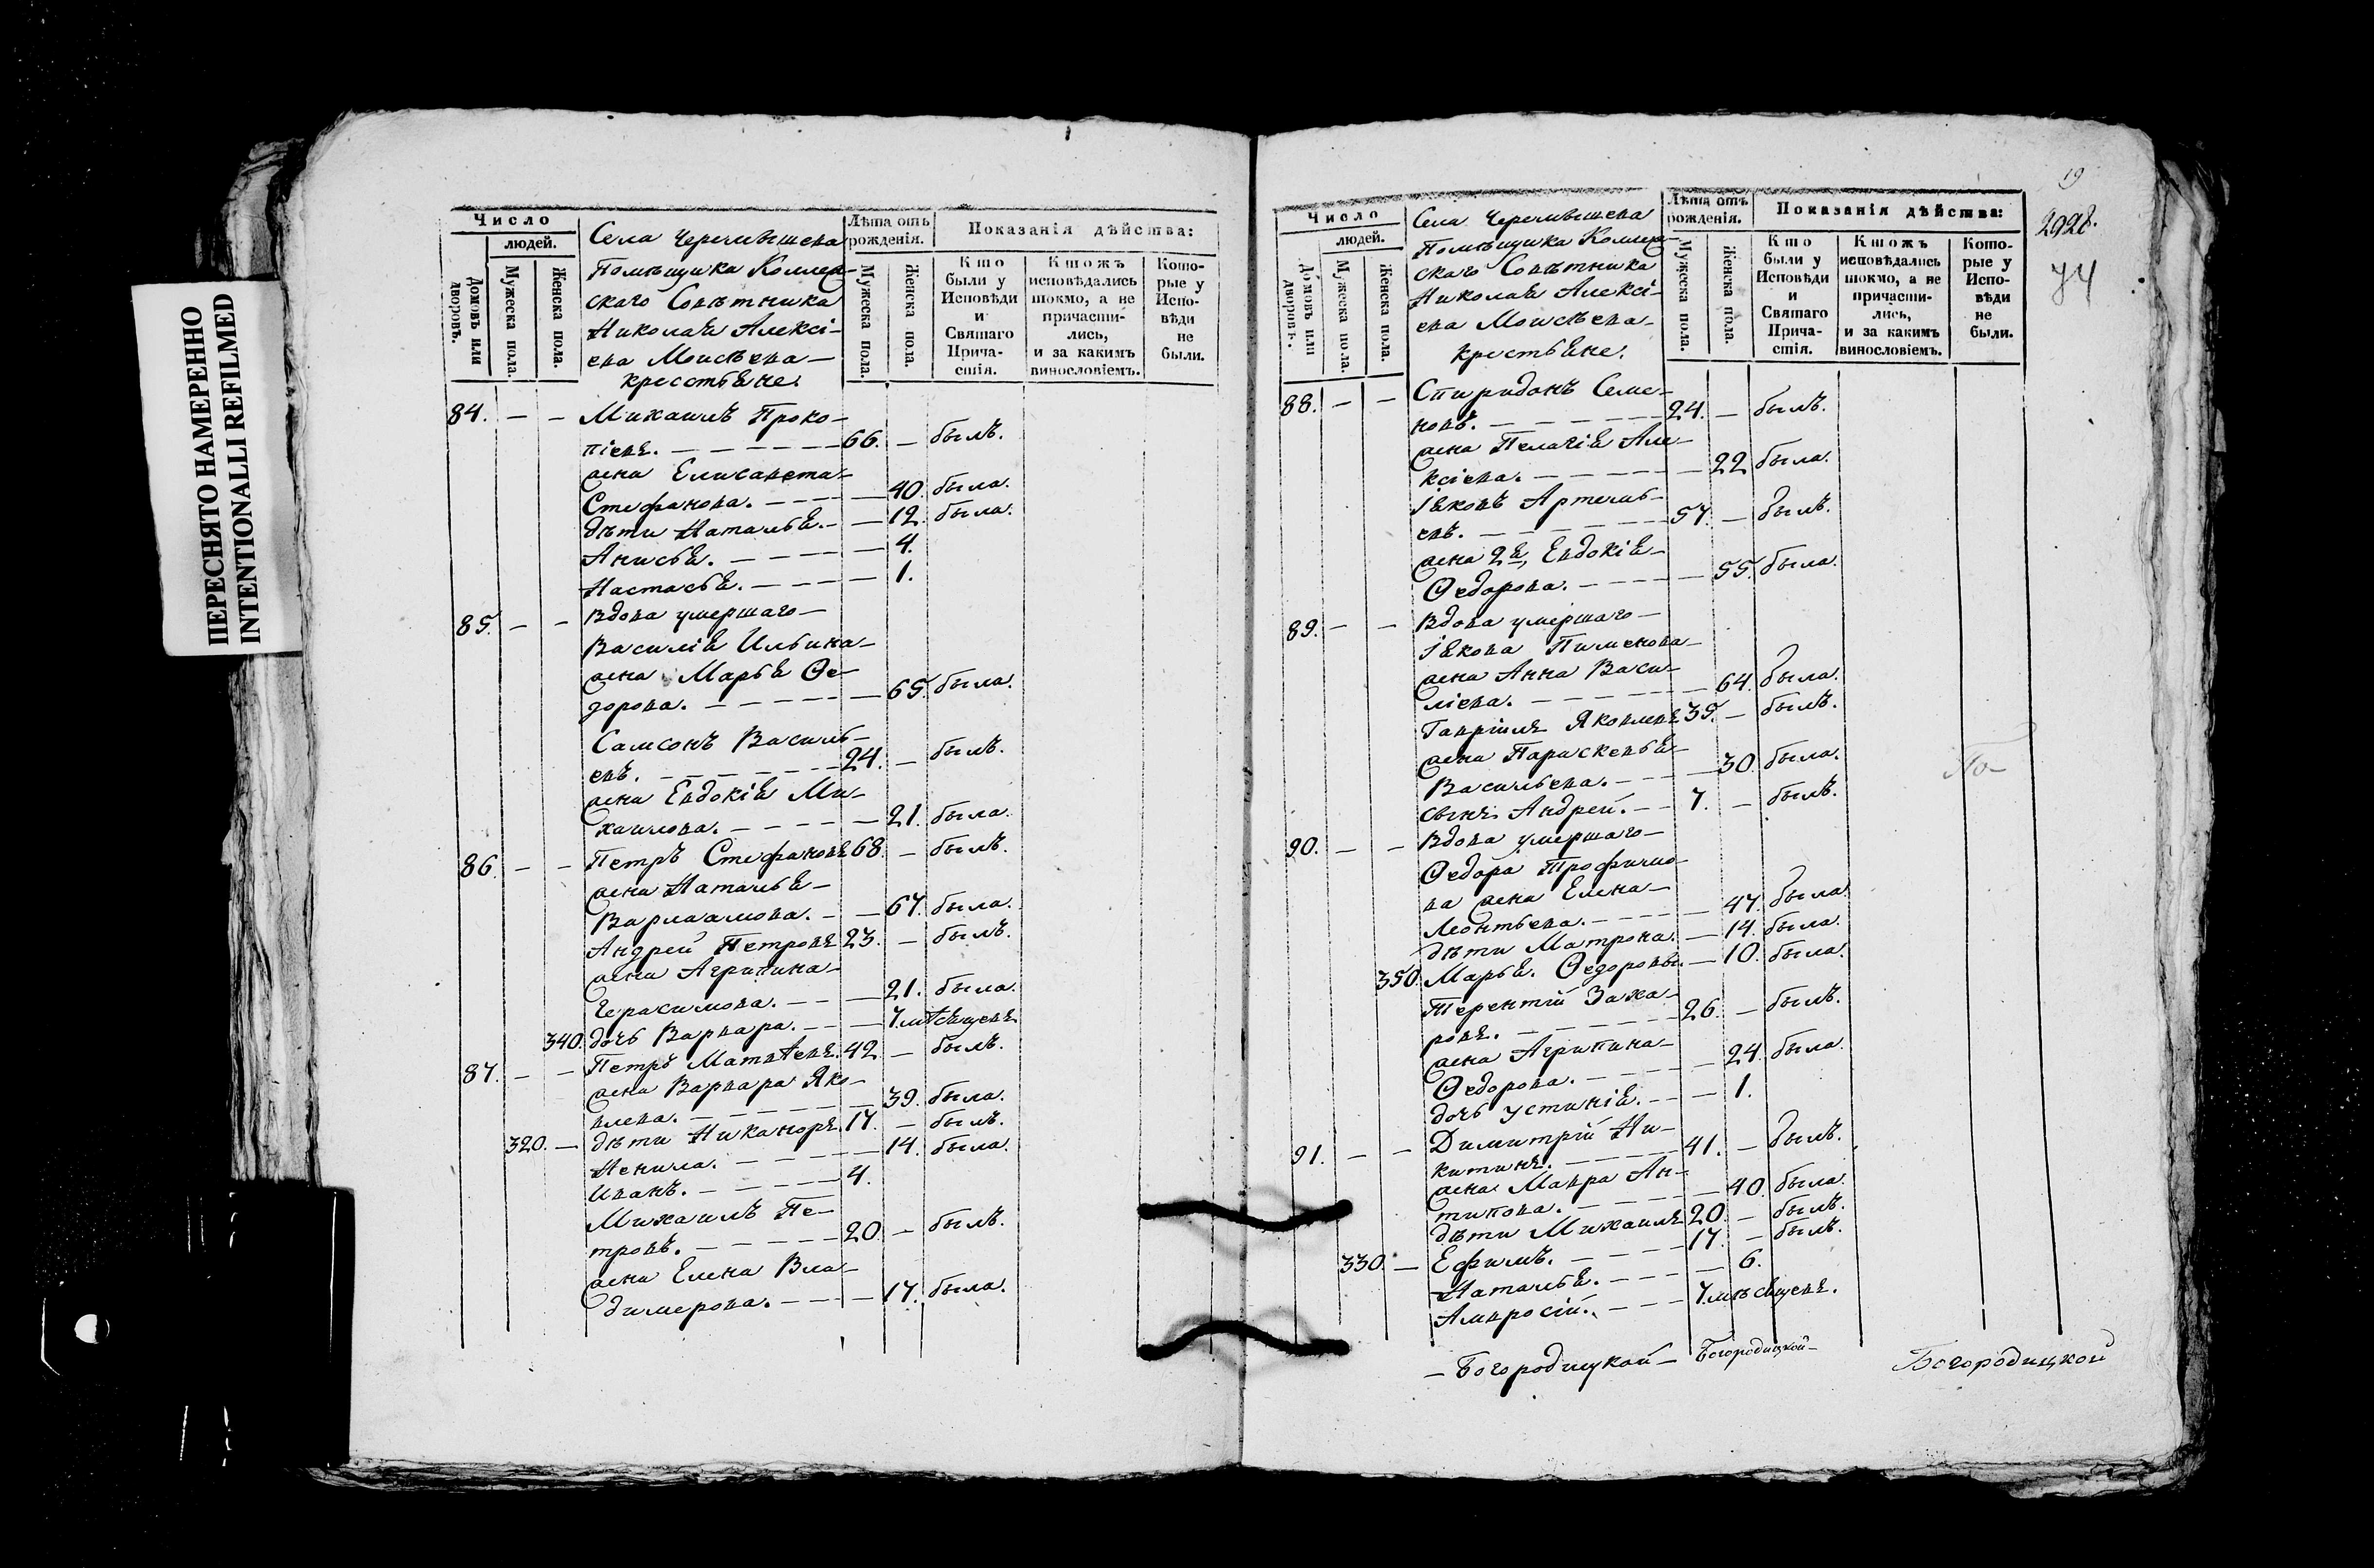 ПЕРЕСНЯТО НАМЕРЕННО
INTENTIONALLI REFILMED
Число
людей.
Домовъ или дворовъ.
Мужеска пола.
Женска пола.
Села Черемышева
Помѣщика Коллеж-
скаго Совѣтника
Николая Алексі-
ева Моисѣева
крестьяне.
Лѣта отъ рожденія.
Мужеска пола.
Женска пола.
Показанія дѣйства:
Кто были у Исповѣди и Святаго Прича-стія.
Ктожъ исповѣдались токмо, а не причасти-лись, и за какимъ винословіемъ.
Кото-рые у Испо-вѣди не были.
84. — — Михаилъ Проко-
піевъ. — 66. — былъ.
жена Елисавета
Стефанова. — 40. была.
дѣти Наталья. — 12. была.
Анисья. — 4.
Настасья. — 1.
85. — — Вдова умершаго
Василія Ильина
жена Марья Ѳе-
дорова. — 65. была.
Самсонъ Василь-
евъ. — 24. — былъ.
жена Евдокія Ми-
хаилова. — 21. была.
86. — — Петръ Стефановъ 68. — былъ.
жена Наталья
Варлаамова. — 67. была.
Андрей Петровъ 23. — былъ.
жена Агрипина
Герасимова. — 21. была.
340. дочь Варвара. — 7. мѣсяцевъ
87. — — Петръ Матвѣевъ. 42. — былъ.
жена Варвара Яко-
влева. — 39. была.
320. — дѣти Никаноръ. 17. — былъ.
Ненила. — 14. была.
Иванъ. — 4.
Михаилъ Пе-
тровъ. — 20. — былъ.
жена Елена Вла-
димерова. — 17. была.
19
2928.
74
Число
людей.
Домовъ или дворовъ.
Мужеска пола.
Женска пола.
Села Черемышева
Помѣщика Коллеж-
скаго Совѣтника
Николая Алексі-
ева Моисѣева
крестьяне.
Лѣта отъ рожденія.
Мужеска пола.
Женска пола.
Показанія дѣйства:
Кто были у Исповѣди и Святаго Прича-стія.
Ктожъ исповѣдались токмо, а не причасти-лись, и за какимъ винословіемъ.
Кото-рые у Испо-вѣди не были.
88. — — Спиридонъ Семе-
новъ. — 24. — былъ.
жена Пелагія Але-
ксіева. — 22 была.
Іяковъ Артемь-
евъ. — 57. — былъ.
жена 2я, Евдокія
Ѳедорова. — 55. была.
89. — — Вдова умершаго
Іякова Пименова
жена Анна Васи-
ліева. — 64. была.
Гавріилъ Яковлевъ 35. — былъ.
жена Параскевья
Васильева. — 30. была.
сынъ Андрей. — 7. — былъ.
90. — — Вдова умершаго
Ѳедора Трофимо-
ва жена Елена
Леонтьева. — 47. была.
дѣти Матрона. — 14. была.
350. Марья. Ѳедоровы. — 10. была.
Терентій Заха-
ровъ. — 26. — былъ.
жена Агрипина
Ѳедорова. — 24. была.
дочь Устинія. — 1.
91. — — Димитрій Ни-
китинъ. — 41. — былъ.
жена Мавра Ан-
типова. — 40. была.
дѣти Михаилъ 20. — былъ.
330. — Ефимъ. — 17. — былъ.
Наталья. — 6.
Амвросій. — 7. мѣсяцевъ.
По-
— Богородицкой — Богородицкой — Богородицкой